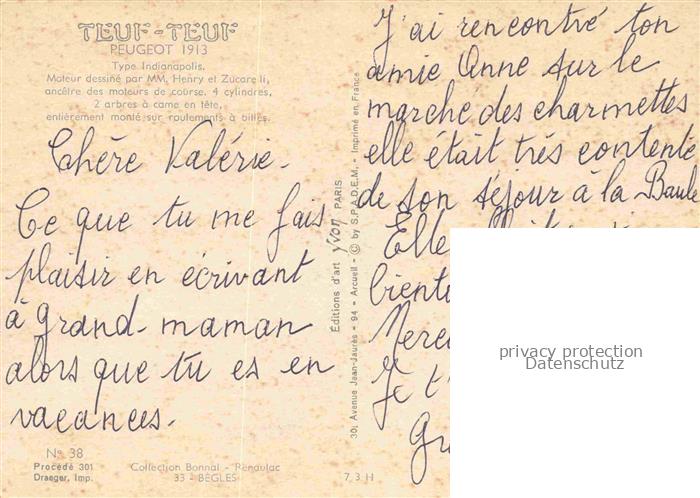 TEUF-TEUF
PEUGEOT 1913
Type Indianapolis.
Moteur dessiné par MM. Henry et Zucarelli,
ancêtre des moteurs de course. 4 cylindres,
2 arbres à came en tête,
entièrement monté sur roulements à billes.
Chère Valérie.
Ce que tu me fais
plaisir en écrivant
à grand-maman
alors que tu es en
vacances.
N° 38
Procédé 301
Draeger, Imp.
Collection Bonnal - Renaulac
33 - BÈGLES
7 3 H
Éditions d'art yvon PARIS
30, Avenue Jean-Jaurès - 94 - Arcueil - © by S.P.A.D.E.M. - Imprimé en France
J'ai rencontré ton
amie Anne sur le
marche des charmettes
elle était très contente
de son séjour à la Baule
Elle
Je t'
privacy protection
Datenschutz